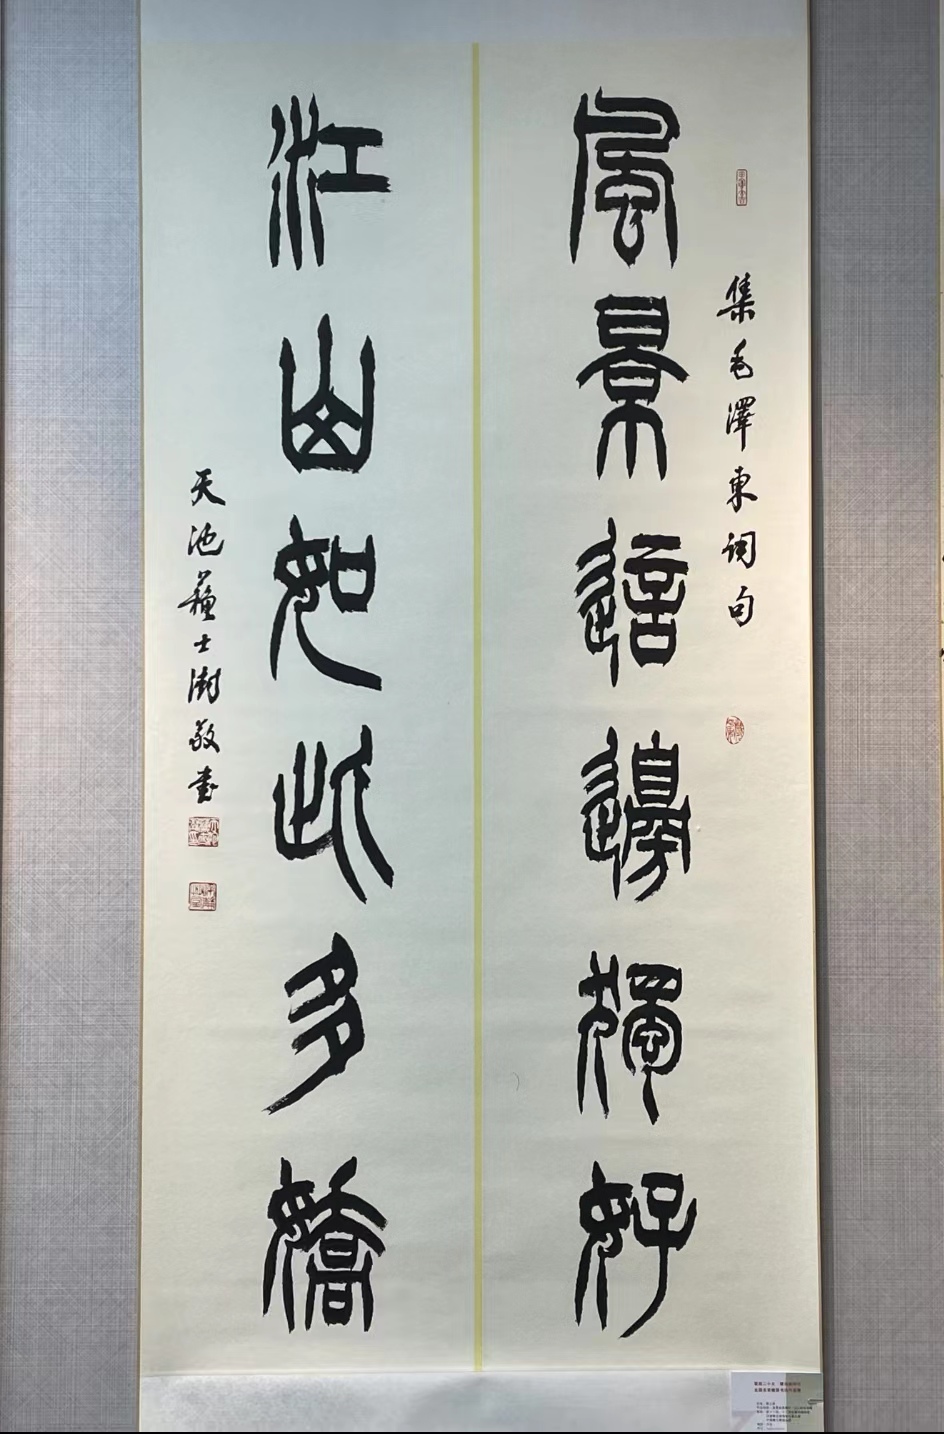 集毛澤東詞句
風景這邊獨好
江山如此多嬌
天池蘇士澍敬書